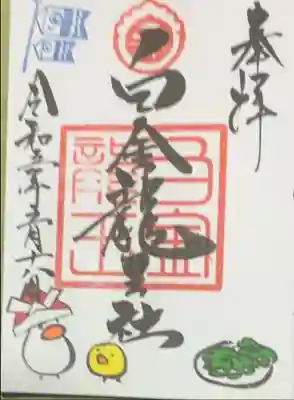 奉拝
白金龍王社
令和五年五月六日